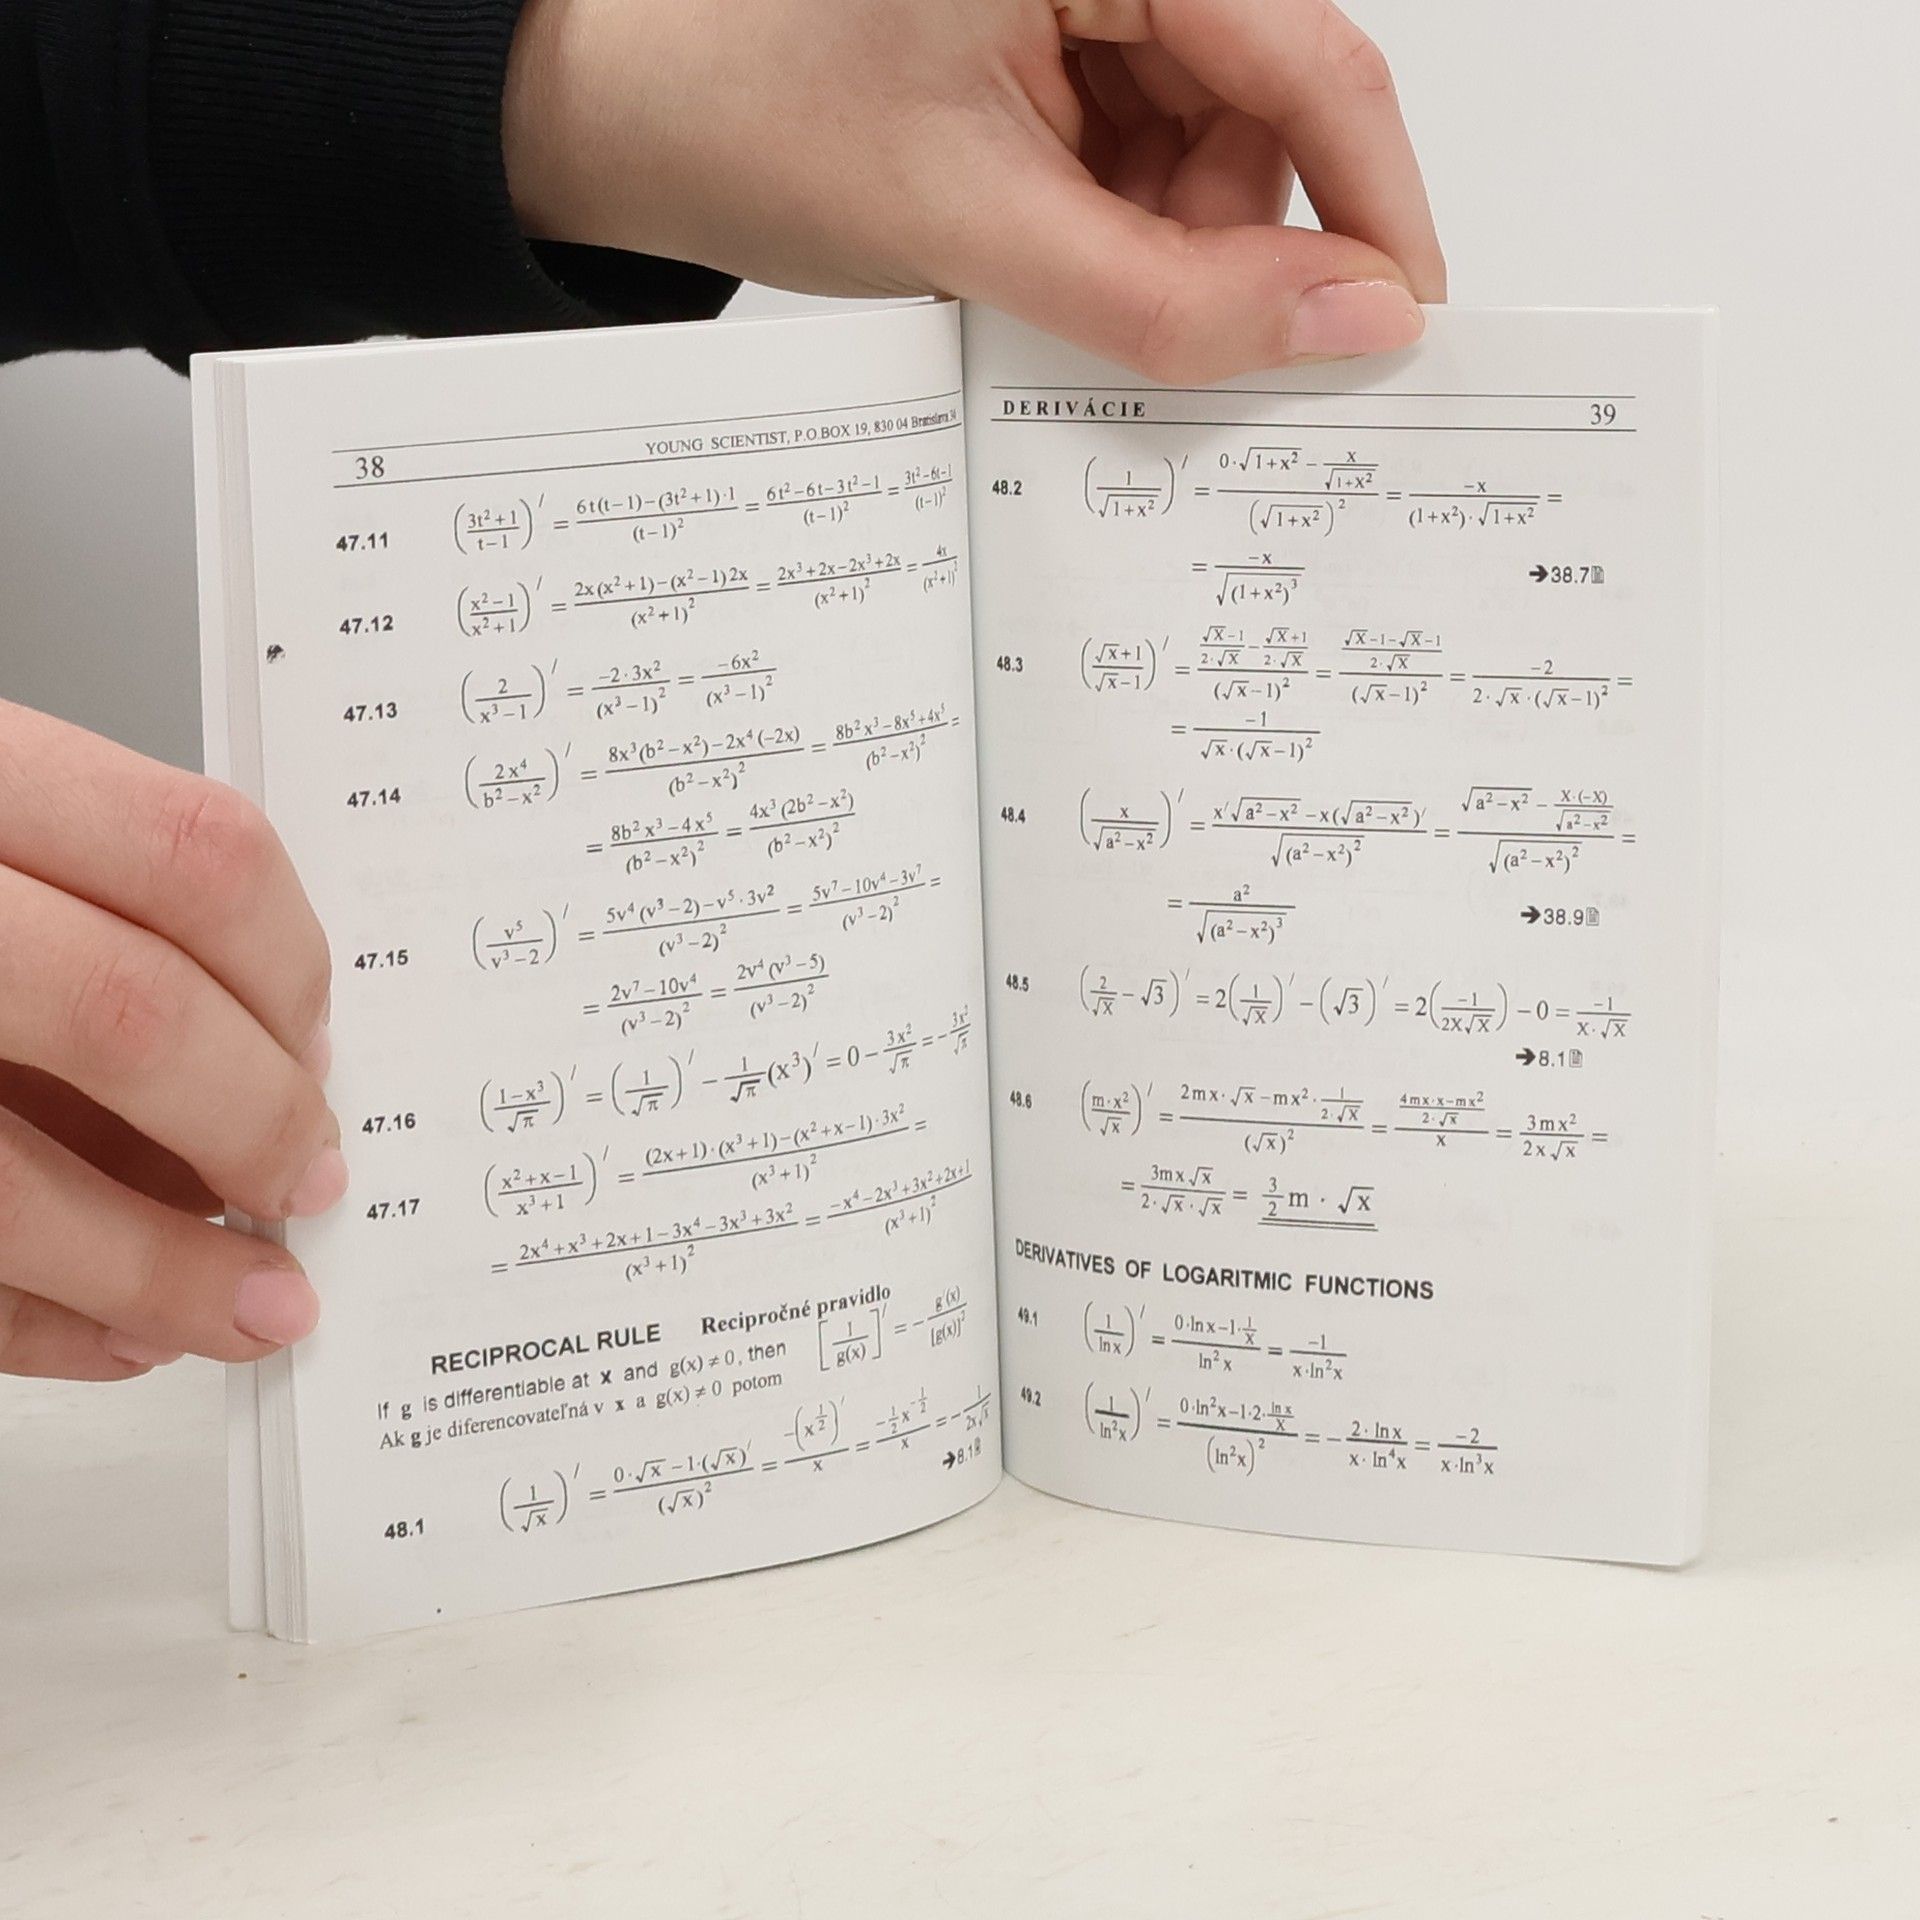 38 YOUNG SCIENTIST, P.O.BOX 19, 830 04 Bratislava 34
47.11 (3t²+1 / t−1)′ = 6t(t−1)−(3t²+1)·1 / (t−1)² = 6t²−6t−3t²−1 / (t−1)² = 3t²−6t−1 / (t−1)²
47.12 (x²−1 / x²+1)′ = 2x(x²+1)−(x²−1)2x / (x²+1)² = 2x³+2x−2x³+2x / (x²+1)² = 4x / (x²+1)²
47.13 (2 / x³−1)′ = −2·3x² / (x³−1)² = −6x² / (x³−1)²
47.14 (2x⁴ / b²−x²)′ = 8x³(b²−x²)−2x⁴(−2x) / (b²−x²)² = 8b²x³−8x⁵+4x⁵ / (b²−x²)² =
= 8b²x³−4x⁵ / (b²−x²)² = 4x³(2b²−x²) / (b²−x²)²
47.15 (v⁵ / v³−2)′ = 5v⁴(v³−2)−v⁵·3v² / (v³−2)² = 5v⁷−10v⁴−3v⁷ / (v³−2)² =
= 2v⁷−10v⁴ / (v³−2)² = 2v⁴(v³−5) / (v³−2)²
47.16 (1−x³ / √π)′ = (1 / √π)′ − 1/√π (x³)′ = 0 − 3x²/√π = − 3x²/√π
47.17 (x²+x−1 / x³+1)′ = (2x+1)·(x³+1)−(x²+x−1)·3x² / (x³+1)² =
= 2x⁴+x³+2x+1−3x⁴−3x³+3x² / (x³+1)² = −x⁴−2x³+3x²+2x+1 / (x³+1)²
RECIPROCAL RULE Recipročné pravidlo
If g is differentiable at x and g(x) ≠ 0, then [1 / g(x)]′ = − g′(x) / [g(x)]²
Ak g je diferencovateľná v x a g(x) ≠ 0 potom
48.1 (1 / √x)′ = 0·√x −1·(√x)′ / (√x)² = −(x^½)′ / x = −½x^−½ / x = − 1 / 2x√x
➔8.1
DERIVÁCIE 39
48.2 (1 / √1+x²)′ = 0·√1+x² − x/√1+x² / (√1+x²)² = −x / (1+x²)·√1+x² =
= −x / √(1+x²)³ ➔38.7
48.3 (√x+1 / √x−1)′ = √x−1/2·√x − √x+1/2·√x / (√x−1)² = √x−1−√x−1/2·√x / (√x−1)² = −2 / 2·√x·(√x−1)² =
= −1 / √x·(√x−1)²
48.4 (x / √a²−x²)′ = x′√a²−x² −x(√a²−x²)′ / √(a²−x²)² = √a²−x² − x·(−x)/√a²−x² / √(a²−x²)² =
= a² / √(a²−x²)³ ➔38.9
48.5 (2/√x − √3)′ = 2(1/√x)′ − (√3)′ = 2(−1 / 2x√x) − 0 = −1 / x·√x
➔8.1
48.6 (m·x² / √x)′ = 2mx·√x − mx²· 1/2·√x / (√x)² = 4mx·x−mx²/2·√x / x = 3mx² / 2x√x =
= 3mx√x / 2·√x·√x = 3/2 m · √x
DERIVATIVES OF LOGARITMIC FUNCTIONS
49.1 (1 / ln x)′ = 0·ln x−1·1/x / ln²x = −1 / x·ln²x
49.2 (1 / ln²x)′ = 0·ln²x−1·2·ln x/x / (ln²x)² = − 2·ln x / x·ln⁴x = −2 / x·ln³x